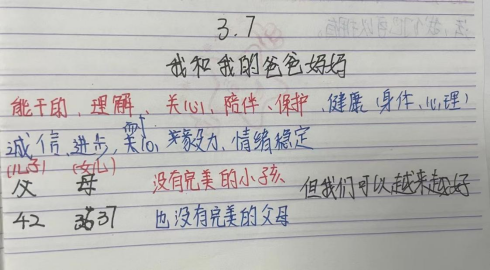 3.7
我和我的爸爸妈妈
能干的、理解、关心、陪伴、保护、健康(身体、心理)
诚信、进步、关心、有毅力、情绪稳定
(儿子) (女儿)
父 母 没有完美的小孩 但我们可以越来越好
42 37 也没有完美的父母